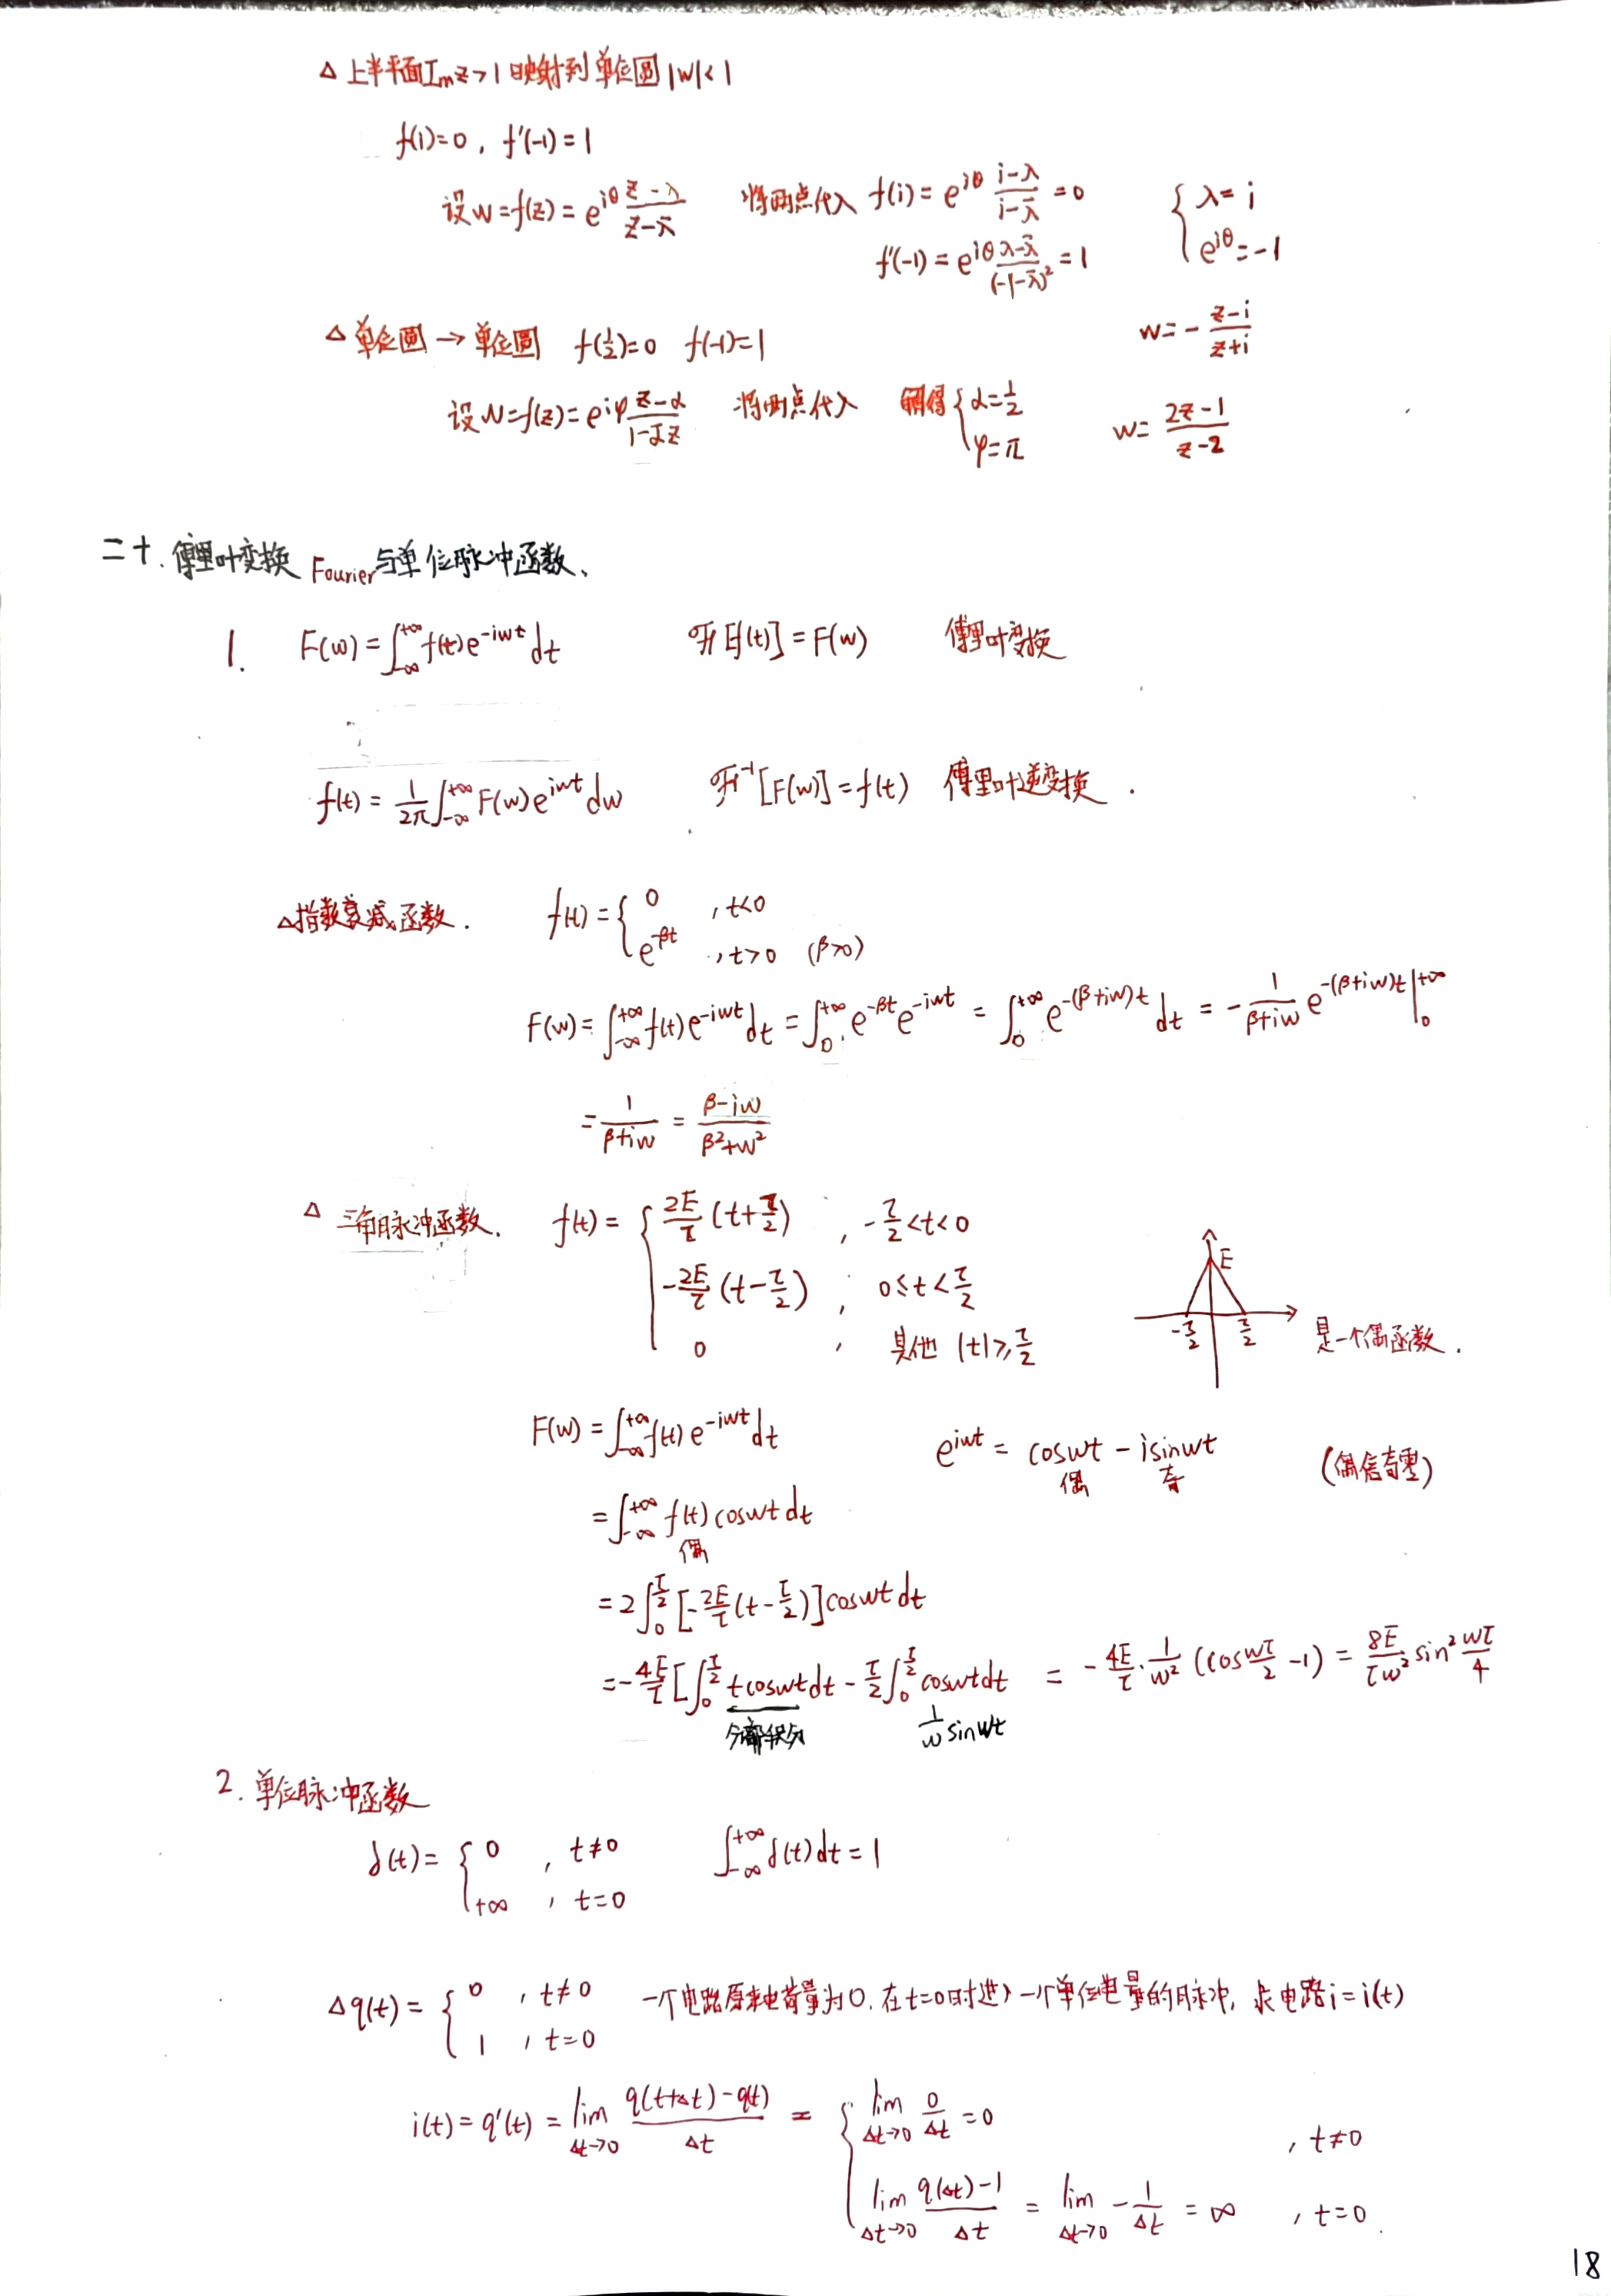 △ 上半平面Imz>1映射到单位圆|w|<1
f(i)=0, f'(-1)=1
设w=f(z)=e^{iθ} (z-λ)/(z-λ̄)  将两点代入 f(i)=e^{iθ} (i-λ)/(i-λ̄)=0  { λ=i
f'(-1)=e^{iθ} (λ-λ̄)/(-1-λ̄)²=1  e^{iθ}=-1
w=-(z-i)/(z+i)
△ 单位圆→单位圆 f(1/2)=0 f(-1)=1
设w=f(z)=e^{iφ} (z-α)/(1-ᾱz)  将两点代入  解得{ α=1/2  φ=π  w=(2z-1)/(z-2)
二十. 傅里叶变换 Fourier与单位脉冲函数、
1. F(w)=∫_{-∞}^{+∞} f(t)e^{-iwt}dt  ℱ[f(t)]=F(w)  傅里叶变换
f(t)=1/2π ∫_{-∞}^{+∞} F(w)e^{iwt}dw  ℱ^{-1}[F(w)]=f(t)  傅里叶逆变换.
△指数衰减函数.  f(t)={ 0 , t<0
e^{-βt} , t>0 (β>0)
F(w)=∫_{-∞}^{+∞} f(t)e^{-iwt}dt=∫_0^{+∞} e^{-βt}e^{-iwt}=∫_0^{+∞} e^{-(β+iw)t}dt=-1/(β+iw) e^{-(β+iw)t}|_0^{+∞}
=1/(β+iw)=(β-iw)/(β²+w²)
△ 三角脉冲函数.  f(t)={ 2E/τ (t+τ/2) , -τ/2<t<0
-2E/τ (t-τ/2) , 0≤t<τ/2
0 , 其他 |t|≥τ/2
E
-τ/2 τ/2 是一个偶函数.
F(w)=∫_{-∞}^{+∞} f(t)e^{-iwt}dt  e^{iwt}=coswt-isinwt (偶倍奇零)
偶 奇
=∫_{-∞}^{+∞} f(t)coswtdt
偶
=2∫_0^{τ/2} [-2E/τ(t-τ/2)]coswtdt
=-4E/τ[∫_0^{τ/2} tcoswtdt-τ/2∫_0^{τ/2} coswtdt =-4E/τ·1/w²(cos wτ/2 -1)=8E/τw² sin² wτ/4
分部积分 1/w sinwt
2. 单位脉冲函数
δ(t)={ 0 , t≠0  ∫_{-∞}^{+∞} δ(t)dt=1
+∞ , t=0
△q(t)={ 0 , t≠0  一个电路原来电荷量为0. 在t=0时进入一个单位电量的脉冲, 求电路i=i(t)
1 , t=0
i(t)=q'(t)=lim_{Δt→0} (q(t+Δt)-q(t))/Δt={ lim_{Δt→0} 0/Δt=0 , t≠0
lim_{Δt→0} (q(Δt)-1)/Δt=lim_{Δt→0} -1/Δt=∞ , t=0.
18